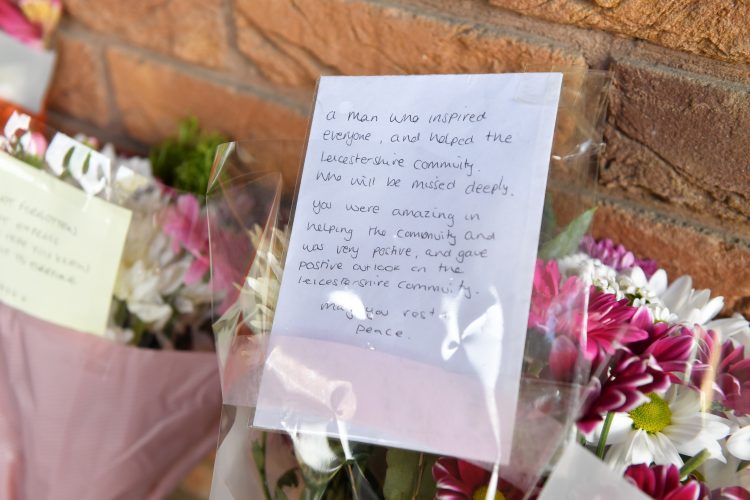 a man who inspired
everyone, and helped the
Leicestershire commuity.
Who will be missed deeply.
you were amazing in
helping the comuity and
was very postive, and gave
postive outlook on the
Leicestershire commuity.
may you rest
peace.
FORGOTTEN